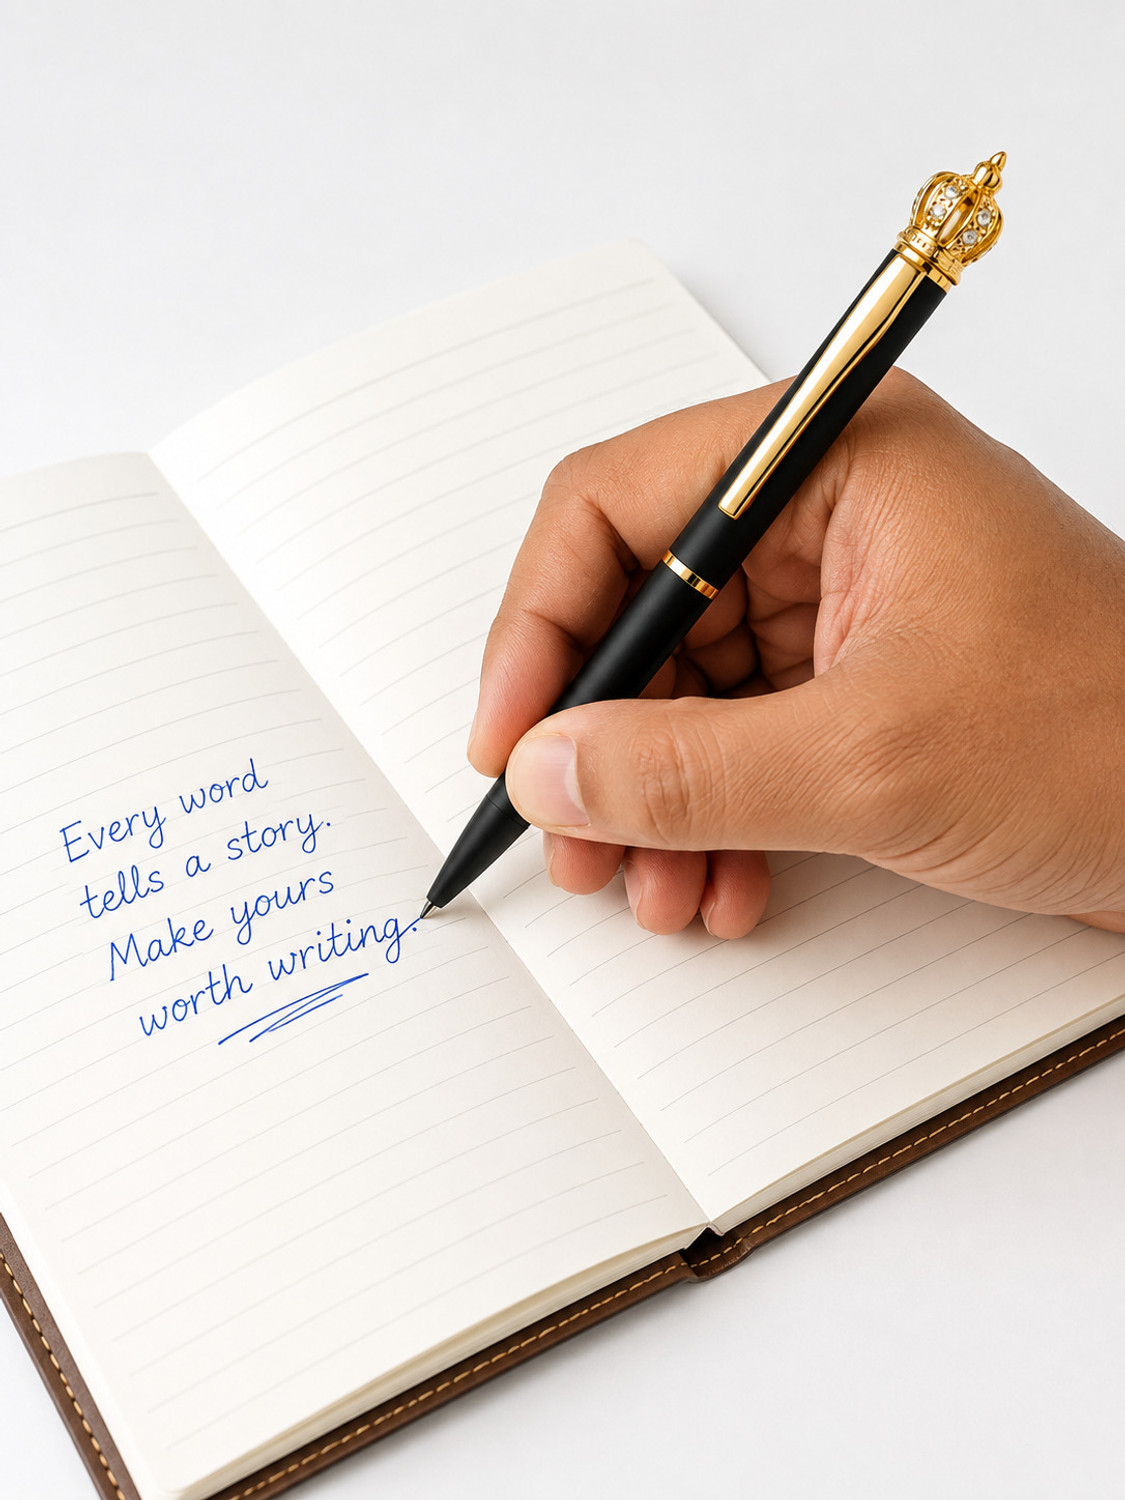 Every word
tells a story.
Make yours
worth writing.